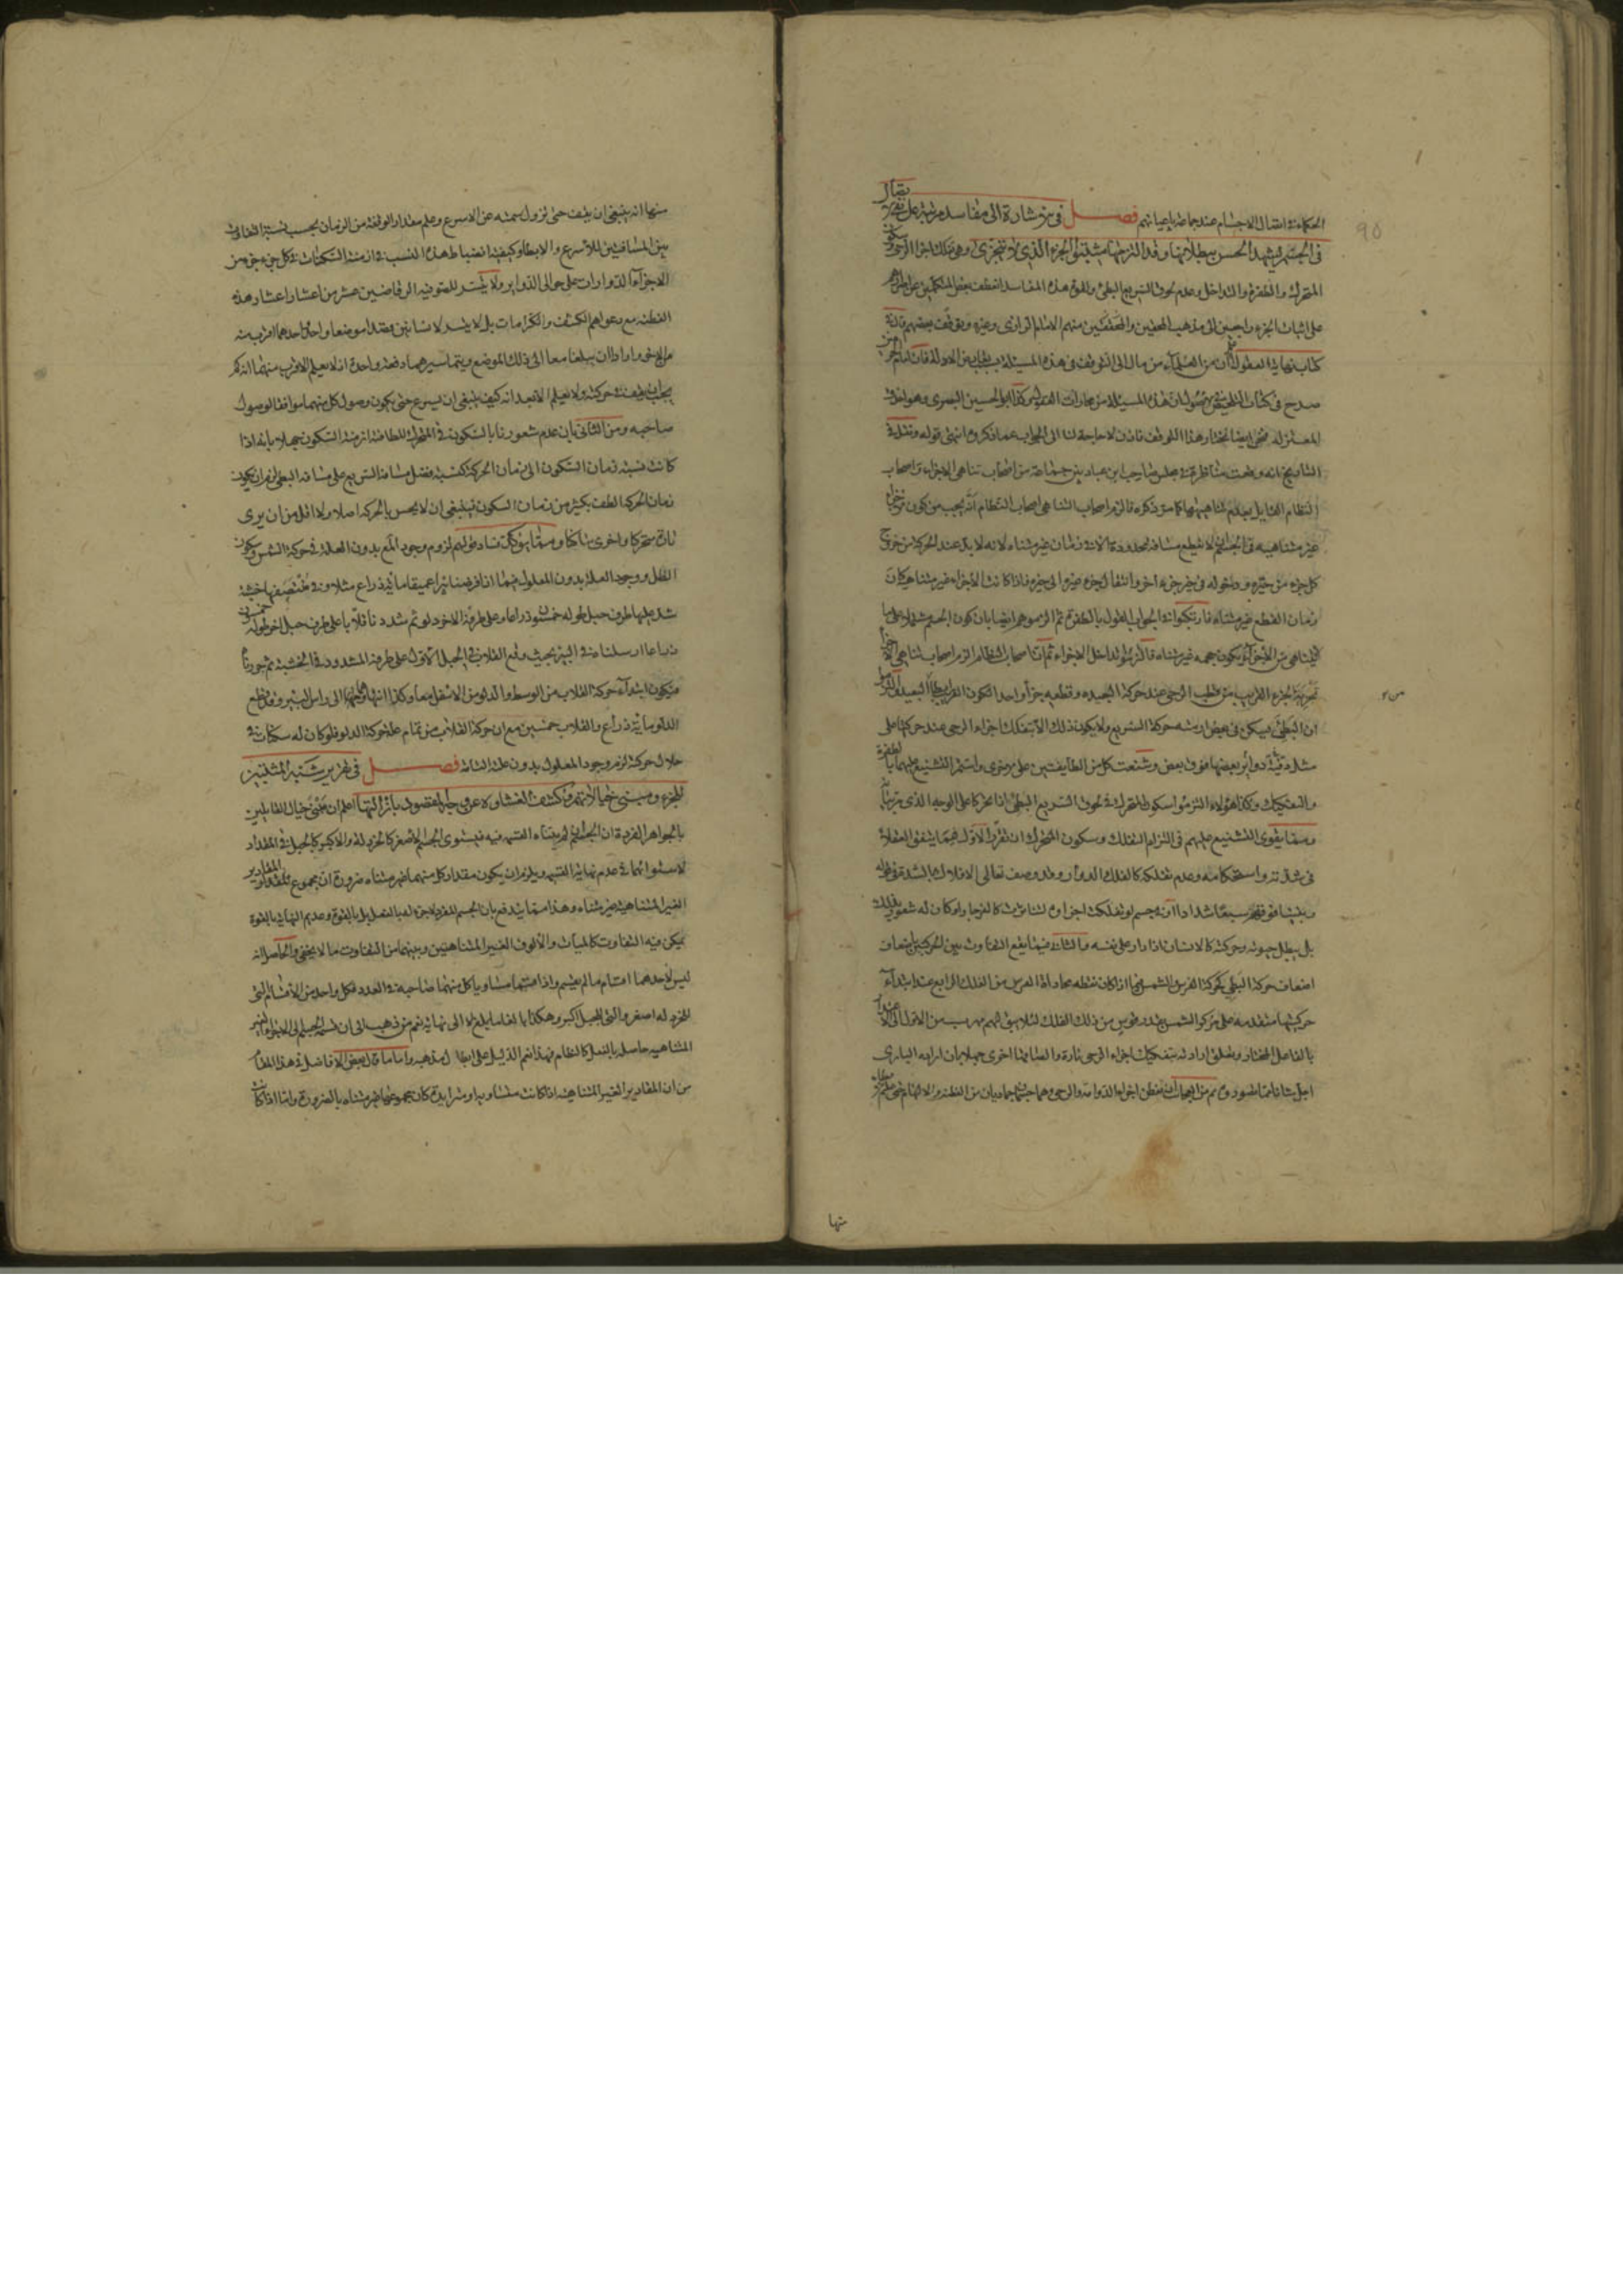 يقال
الحكماء في اتصال الاجسام عند جماعة باعيانهم فصل في اشارة الى مفاسد مرتبة على
في الجسم يشهد الحس ببطلانها وقد التزمها مثبتوا الجزء الذي لا يتجزى وهي تفكك اجزاء الرحى وسكون
المتحرك والطفرة والتداخل وعدم لحوق السريع البطئ ولقوة هذه المفاسد انعطف بعض المتكلمين عن
على اثبات الجزء راجعين الى مذهب المحققين منهم الامام الرازى وغيره وتوقف بعضهم فانه
كتاب نهاية العقول ان من العلماء من مال الى التوقف في هذه المسئلة بسبب تعارض الادلة فان امام الحرمين
صرح في كتاب التلخيص ان هذه المسئلة من محارات العقول وكذا ابو الحسين البصرى وهو احذق
المعتزلة فنحن ايضا نختار هذا التوقف فاذن لا حاجة لنا الى الجواب عما ذكروه انتهى قوله ونقل في
التاريخ انه وقعت مناظرة في مجلس صاحب ابن عباد بين جماعة من اصحاب تناهى الاجزاء واصحاب
النظام القايل بعدم تناهيها كما مر ذكره فالزم اصحاب التناهى اصحاب النظام انه يجب من كون
غير متناهيه في الجسم ان لا يقطع مسافة محدودة الا في زمان غير متناه لانه لا بد عند الحركة من خروج
كل جزء من حيزه ودخوله في حيز جزء اخر وانتقال جزء من حيز الى حيز فاذا كانت الاجزاء غير متناهية كان
زمان القطع غير متناه فارتكبوا في الجواب القول بالطفرة ثم الزموهم ايضا بان كون الجسم مشتملا على ما
لا يتناهى من الاجزاء يكون حجمه غير متناه فالتزموا تداخل الاجزاء ثم ان اصحاب النظام الزم اصحاب تناهى الاجزاء
تجزية الجزء القريب من قطب الرحى عند حركة البعيدة وقطعه جزأ واحدا لكون القريب ابطأ
ان البطئ يسكن في بعض ازمنه حركة السريع ولا يكون ذلك الا بتفكك اجزاء الرحى عند حركتها على
مثل دقيقة دوائر بعضها فوق بعض وشنعت كل من الطايفتين على الاخرى واستمر التشنيع عليهما بالطفرة
والتفكيك وكذا هؤلاء التزموا سكون المتحرك في لحوق السريع البطئ اذا تحركا على الوجه الذى مر بيانه
ومما يقوى التشنيع عليهم في التزام التفكك وسكون المتحرك ان نقرر الاول فيما يتفق العقلاء
في شدته واستحكامه وعدم تفككه كالفلك الدوار وقد وصف تعالى الافلاك بالشدة في قوله
وبنينا فوقكم سبعا شدادا او جسم لو تفككت اجزاؤه لتناثرت كالفرجار او كان له شعور بذلك
بل يبطل حيوته وحركته كالانسان اذا دار على نفسه والثانى فيما يقع التفاوت بين الحركتين باضعاف
اضعاف حركة البطئ كحركة الفرس والشمس اذا كان نقطه محاذاة الفرس من الفلك الرابع عند ابتداء
حركتها متقدمة على مركز الشمس بقدر قوس من ذلك الفلك
بالفاعل المختار وتعلق ارادته بتفكيك اجزاء الرحى تارة والصاقها اخرى
منها
منها انه ينبغى ان يقف حتى تزول سمته عن الاسرع وعلم مقدار الوقفة من الزمان بحسب نسبة التفاوت
بين المسافتين للاسرع والابطأ وكيفية انضباط هذه النسب في ازمنة السكنات في كل جزء جزء من
الاجزاء الدوارات على حوالى الدواير ولا يتيسر للصوفيه الرقاصين عشر من اعشار اعشار هذه
الفطنة مع دعواهم الكشف والكرامات بل لا يتيسر لانسانين قصدا موضعا واحدا احدهما اقرب منه
من الاخر وارادا ان يبلغا معا الى ذلك الموضع ويتما سيرهما دفعة واحدة اذ لا يعلم الاقرب منهما انه كم
يجب ان يقف في حركته ولا يعلم الابعد انه كيف ينبغى ان يسرع حتى يكون وصول كل منهما موافقا لوصول
صاحبه ومن الثانى بان عدم شعورنا بالسكون في المتحرك للطافة ازمنة السكون جهلا بانه اذا
كانت نسبة زمان السكون الى زمان الحركة كنسبة فضل مسافة السريع على مسافة البطئ لزم ان يكون
زمان الحركة الطف بكثير من زمان السكون فينبغى ان لا يحس بالحركة اصلا ولا اقل من ان يرى
تارة متحركا واخرى ساكنا ومما يؤكد فساد قولهم لزوم وجود المعلول بدون العلة في حركة الشمس وسكون
الظل ووجود العلة بدون المعلول فيما اذا فرضنا بئرا عميقا مائة ذراع مثلا وفي منتصفها خشبة
شد عليها طرف حبل طوله خمسون ذراعا وعلى طرفه الاخر دلو ثم شددنا قلابا على طرف حبل اخر طوله خمسون
ذراعا ارسلناه في البئر بحيث وقع القلاب في الحبل الاول على طرفه المشدود في الخشبة ثم جررناه
فيكون ابتداء حركة القلاب من الوسط والدلو من الاسفل معا وكذا انتهاؤهما الى راس البئر وقد قطع
الدلو مائة ذراع والقلاب خمسين مع ان حركة القلاب من تمام علة حركة الدلو فلو كان له سكنات في
خلال حركته لزم وجود المعلول بدون علته التامة فصل في تحرير شبه المثبتين
للجزء ومبنى خيالاتهم وكشف الغشاوة عن وجه المقصود بازالتها اعلم ان مبنى خيال القايلين
بالجواهر الفردة ان الجسم لو لم يتناه القسمة فيه فيستوى الجسم الاصغر كالخردلة والاكبر كالجبل في المقدار
لاستوائهما في عدم نهاية القسمة ويلزم ان يكون مقدار كل منهما غير متناه ضرورة ان مجموع المقادير
الغير المتناهية غير متناه وهذا مما يندفع بان الجسم المفرد لا جزء له بالفعل بل بالقوة وعديم النهاية بالقوة
يمكن فيه التفاوت كالمئات والالوف الغير المتناهيين وبينهما من التفاوت ما لا يخفى والحاصل انه
ليس لاحدهما اقسام ما لم يقسم واذا قسمتهما متساويا كل منهما صاحبه في العدد فكل واحد من الاقسام التى
للخردلة اصغر والتى للجبل اكبر وهكذا بالغا ما بلغ لا الى نهاية نعم من ذهب الى ان قسمة الجسم الى الاجزاء الغير
المتناهية حاصلة بالفعل كالنظام فهذا نعم الدليل على ابطال مذهبه واما ما قال بعض الافاضل في هذا المقام
من ان المقادير الغير المتناهية اذا كانت متساوية او متزايدة كان مجموعها غير متناه بالضرورة واما اذا كانت